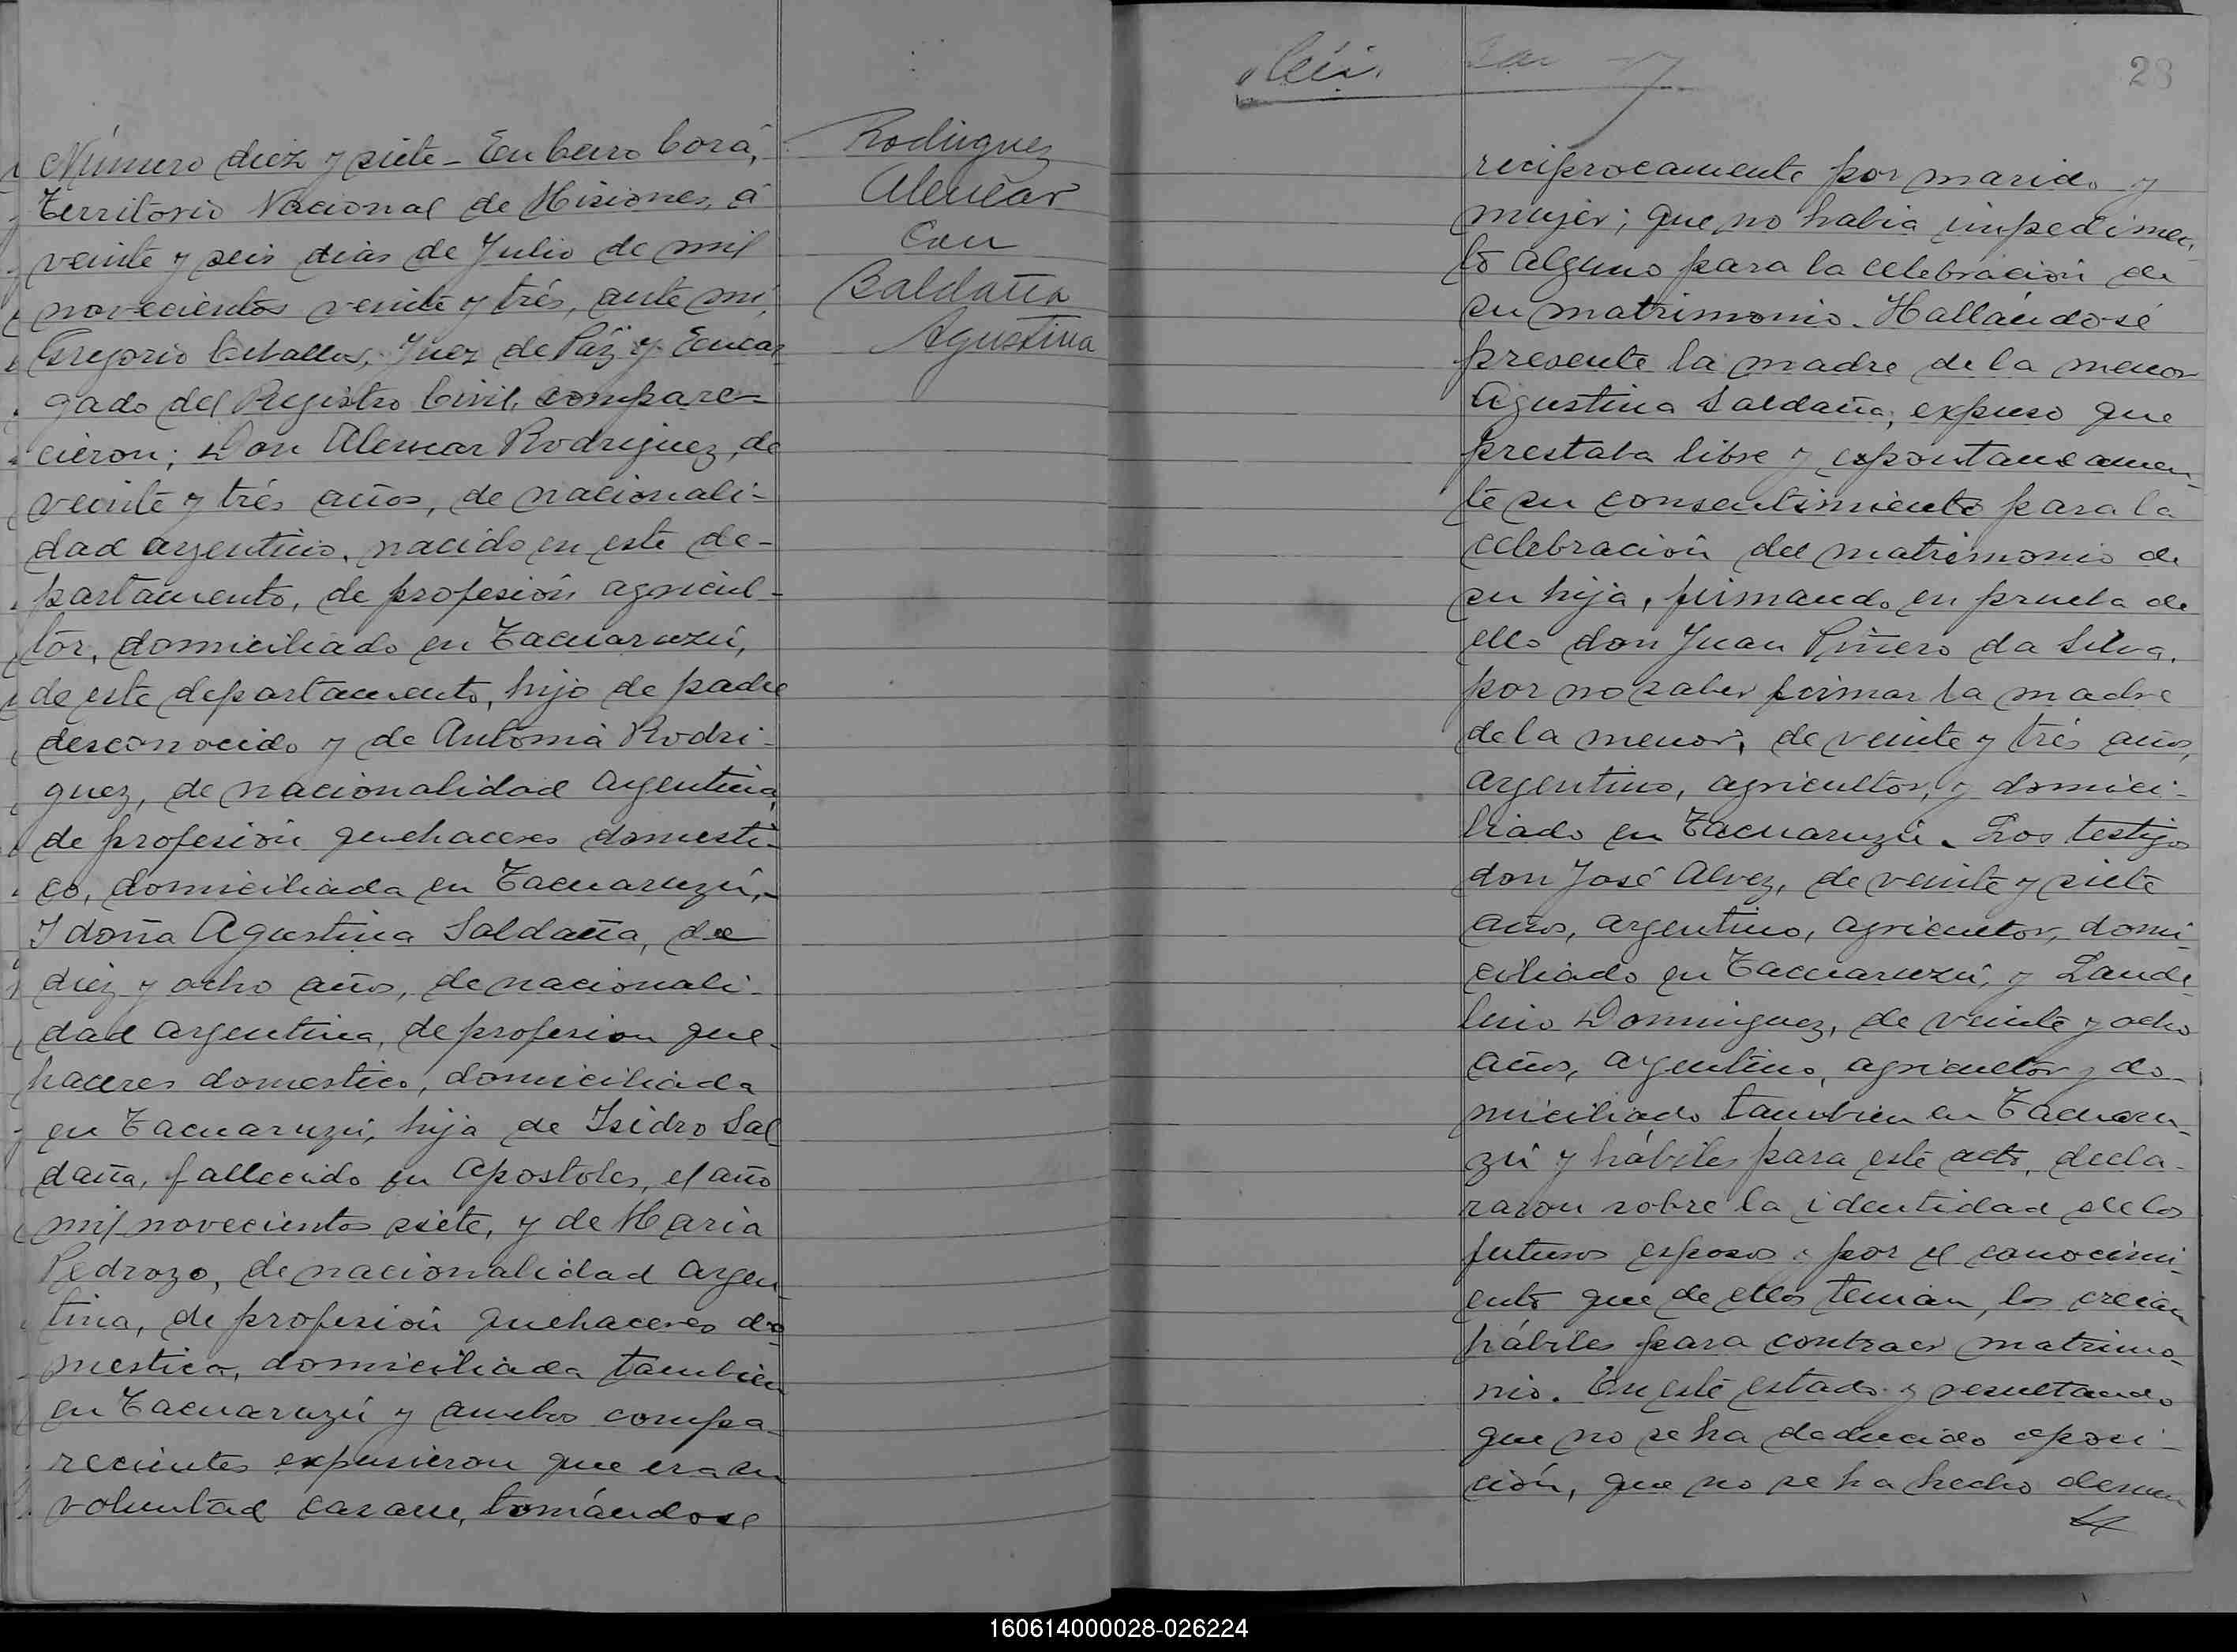 Número diez y siete - En Cerro Corá,
Territorio Nacional de Misiones, á
veinte y seis dias de Julio de mil
novecientos veinte y trés, ante mi,
Gregorio Ceballos, Juez de Páz y Encar
gado del Registro Civil, compare-
cieron; Don Alencar Rodriguez, de
veinte y trés años, de nacionali-
dad argentino, nacido en este de-
partamento, de profesión agricul-
tor, domiciliado en Tacuaruzú,
de este departamento, hijo de padre
desconocido y de Antonia Rodri-
guez, de nacionalidad argentina,
de profesión quehaceres domesti-
co, domiciliada en Tacuaruzú,-
Y doña Agustina Saldaña, de
diez y ocho años, de nacionali-
dad argentina, de profesion que-
haceres domestico, domiciliada
en Tacuaruzú, hija de Isidro Sal
daña, fallecido en Apostoles, el año
mil novecientos siete, y de Maria
Pedrozo, de nacionalidad argen
tina, de profesión quehaceres do
mestica, domiciliada tambien
en Tacuaruzú y ambos compa-
recientes expusieron que era su
voluntad casarse, tomándose
Rodriguez
Alencar
Con
Saldaña
Agustina
28
reciprocamente por marido y
mujer; que no habia impedimen
to alguno para la celebración de
su matrimonio. Hallándosé
presente la madre de la menor
Agustina Saldaña, expuso que
prestaba libre y espontaneamen
te su consentimiento para la
celebración del matrimonio de
su hija, firmando en prueba de
ello don Juan Piñero da Silva,
por no saber firmar la madre
de la menor, de veinte y trés años,
argentino, agricultor, y domici-
liado en Tacuaruzú. Los testigos
don José Alvez, de veinte y siete
años, argentino, agricultor, domi
ciliado en Tacuaruzú, y Laude
lino Dominguez, de veinte y ocho
años, argentino, agricultor y do-
miciliado tambien en Tacuaru-
zú y hábiles para este acto, decla-
raron sobre la identidad de los
futuros esposos y por el conocimi
ento que de ellos tenian, los creian
hábiles para contraer matrimo-
nio. En este estado y resultando
que no se ha deducido oposi-
ción, que no se ha hecho denun
160614000028-026224